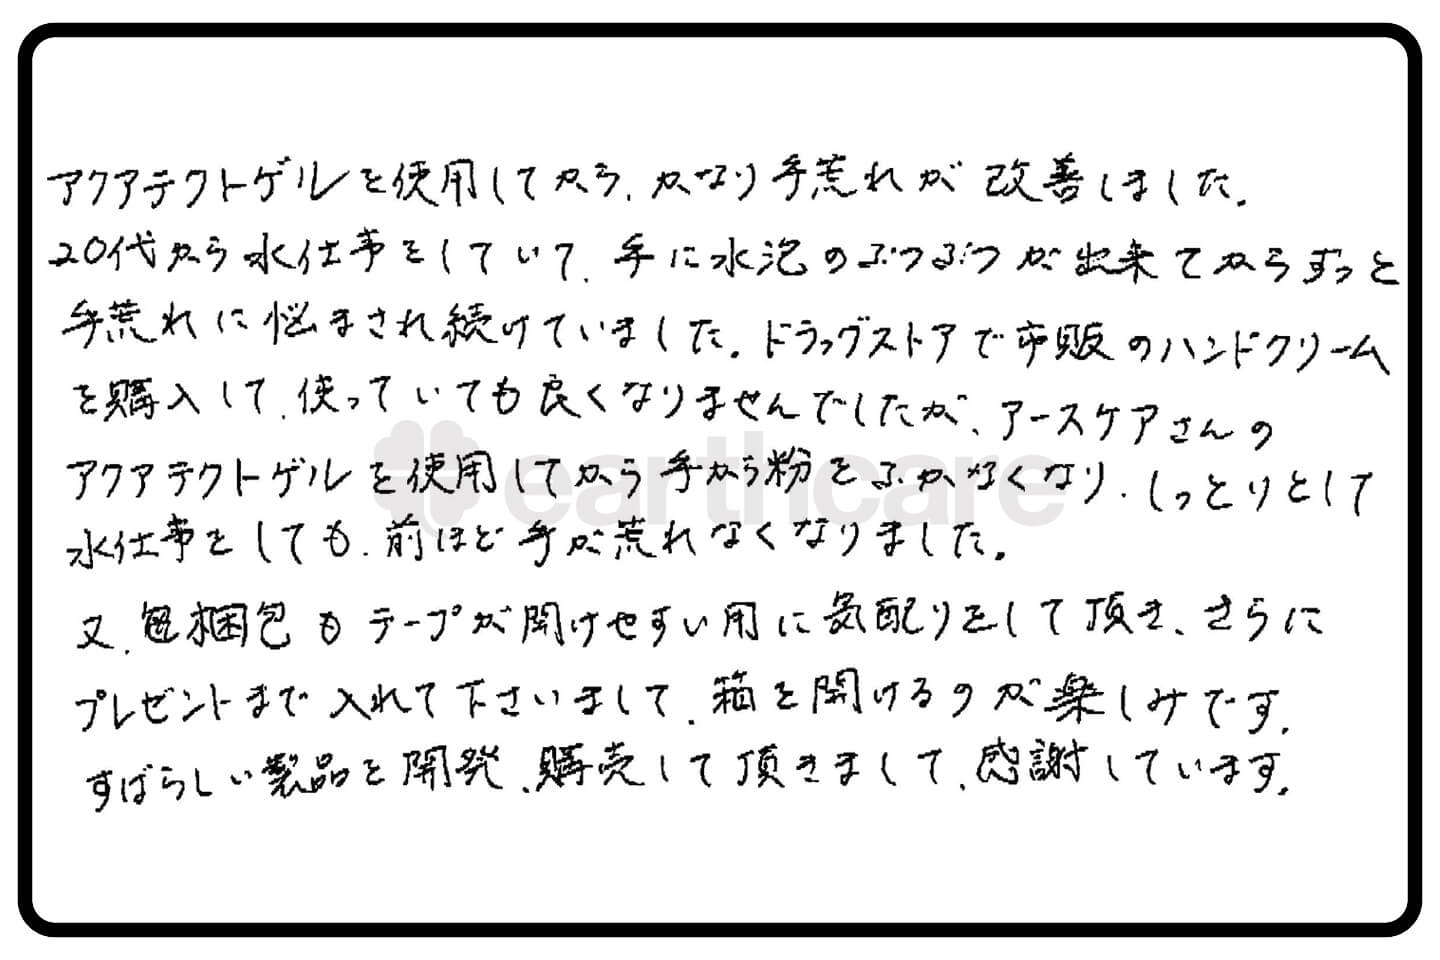 アクアテクトゲルを使用してから、かなり手荒れが改善しました。
20代から水仕事をしていて、手に水泡のぶつぶつが出来てからずっと
手荒れに悩まされ続けていました。ドラッグストアで市販のハンドクリーム
を購入して、使っていても良くなりませんでしたが、アースケアさんの
アクアテクトゲルを使用してから手から粉をふかなくなり、しっとりとして
earthcare
水仕事をしても、前ほど手が荒れなくなりました。
又、梱包もテープが開けやすい用に気配りをして頂き、さらに
プレゼントまで入れて下さいまして、箱を開けるのが楽しみです。
すばらしい製品を開発、購売して頂きまして、感謝しています。